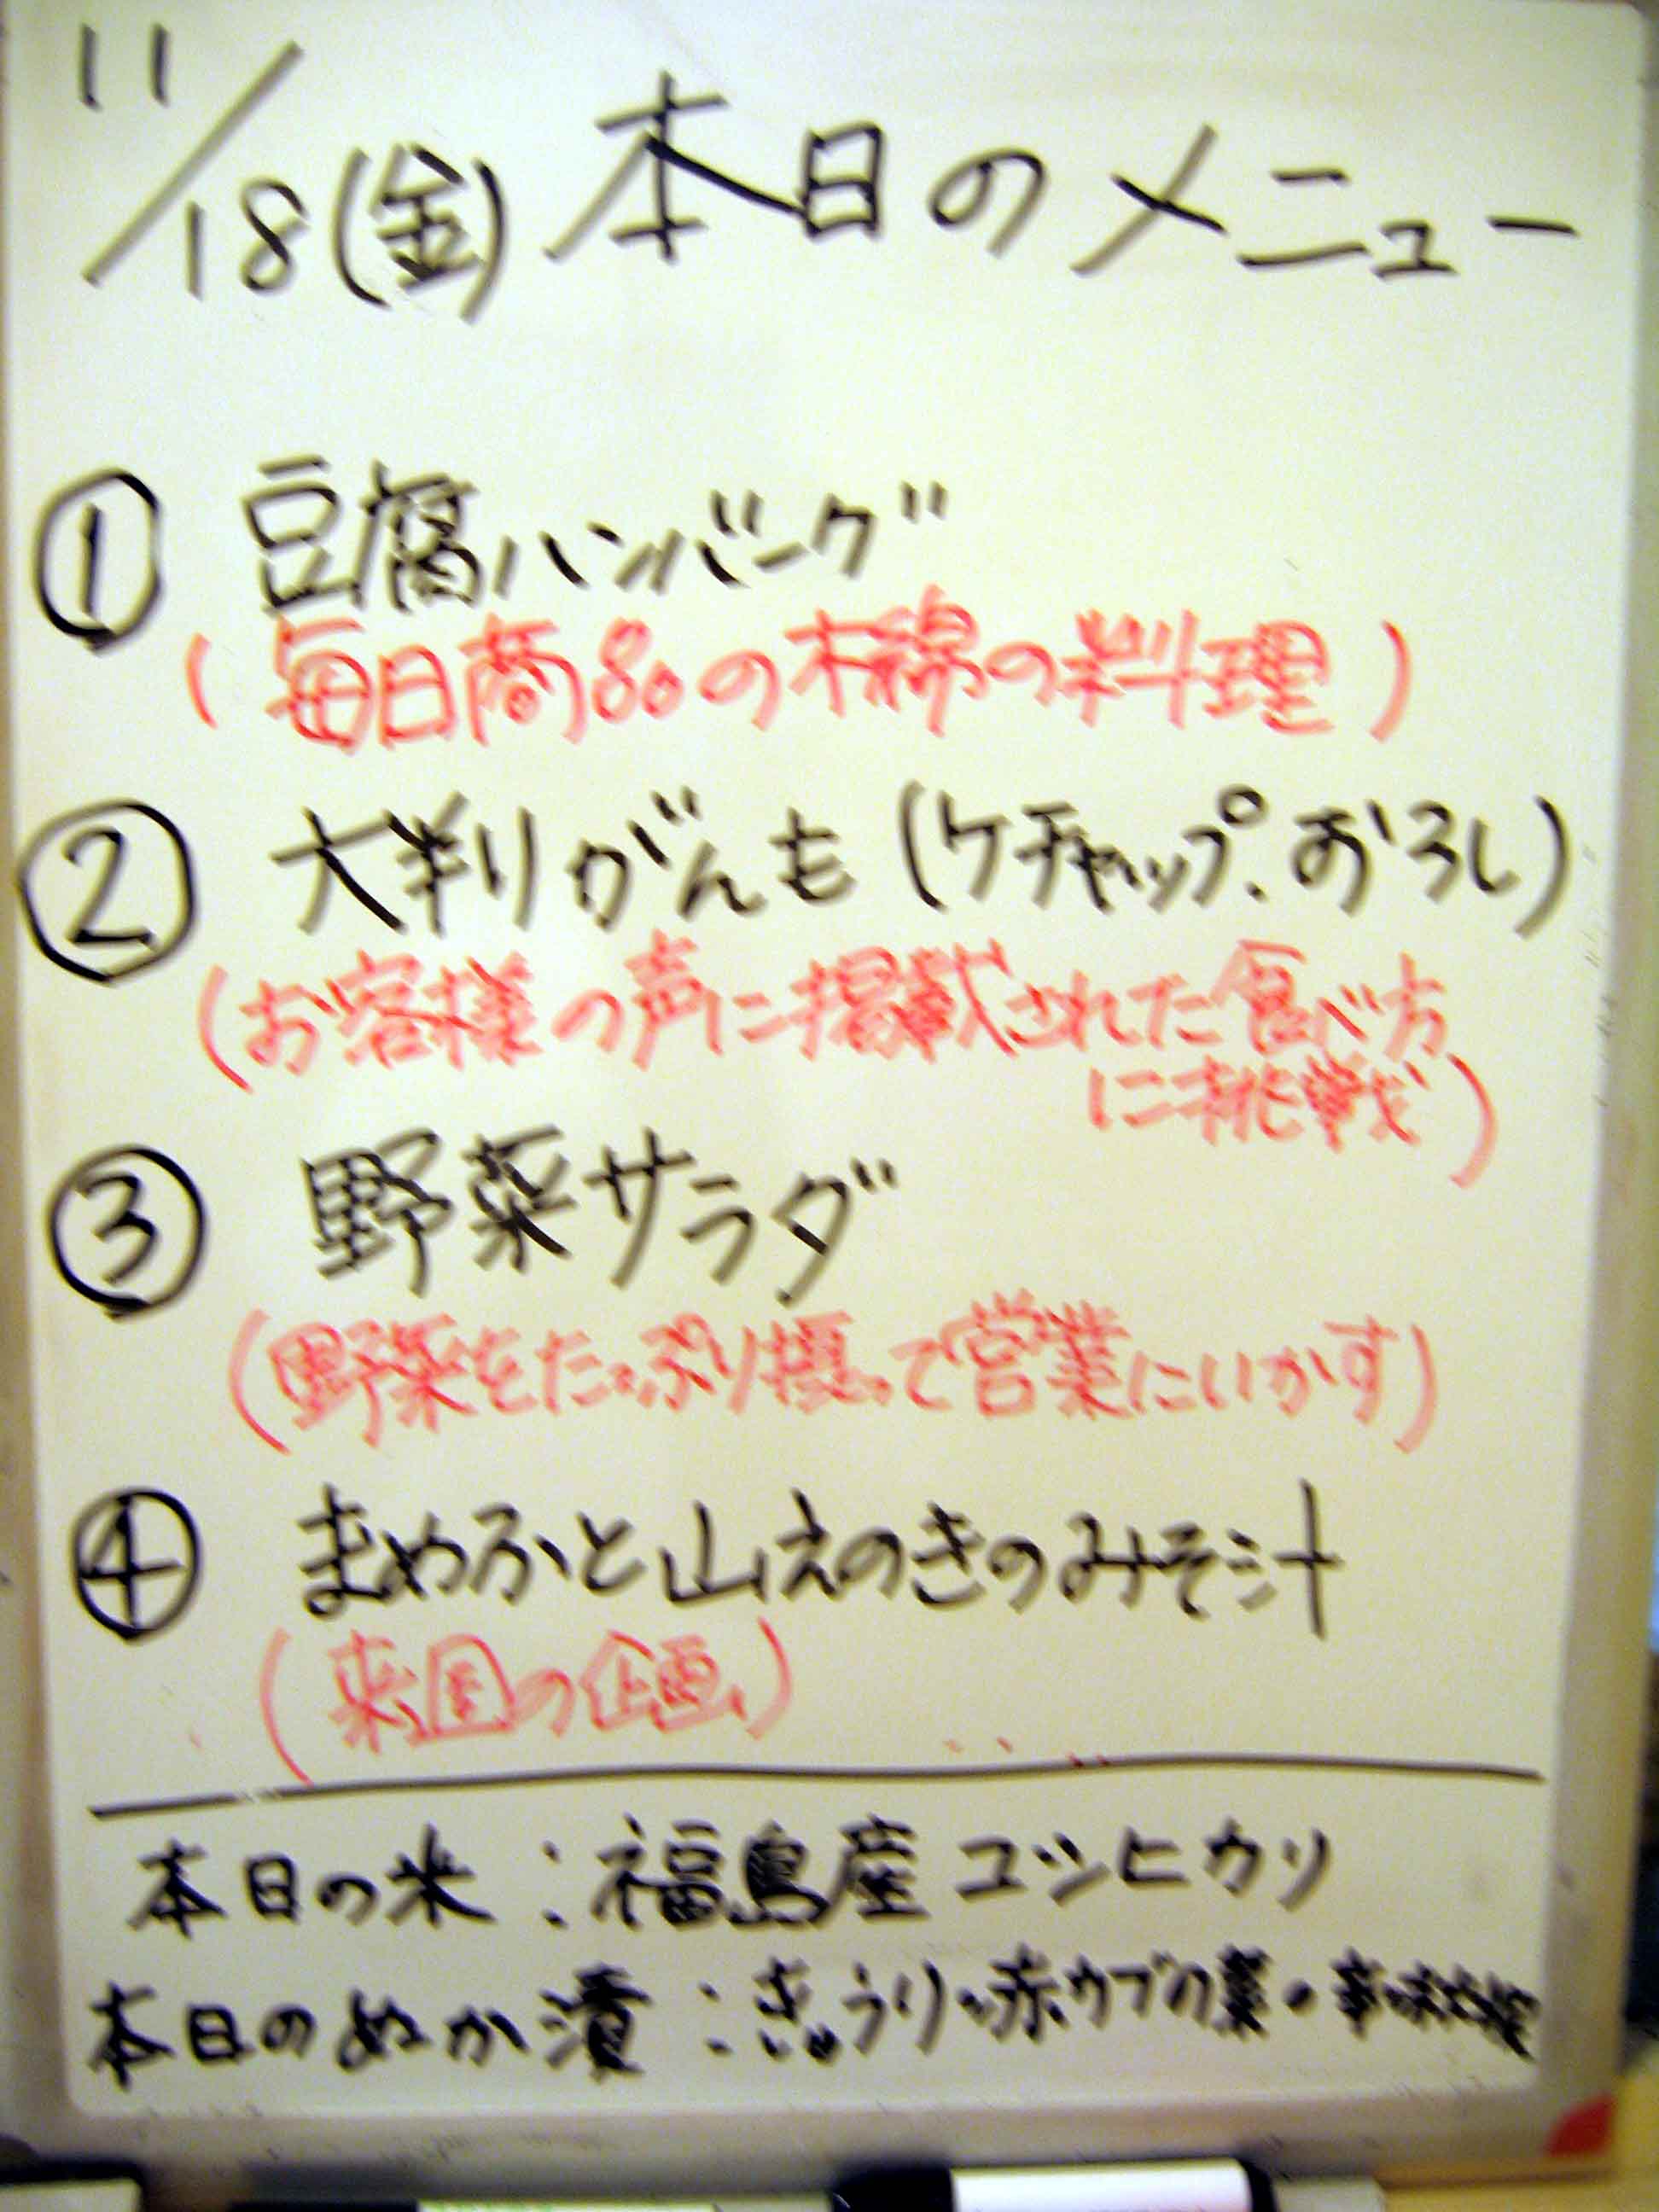 11/18(金)本日のメニュー
① 豆腐ハンバーグ
(毎日商品の木綿の料理)
② 大判がんも(ケチャップ.おろし)
(お客様の声に掲載された食べ方
に挑戦)
③ 野菜サラダ
(野菜をたっぷり摂って営業にいかす)
④ まめふと山えのきのみそ汁
(来週の企画)
本日の米:福島産コシヒカリ
本日のぬか漬:きゅうり・赤カブの葉・